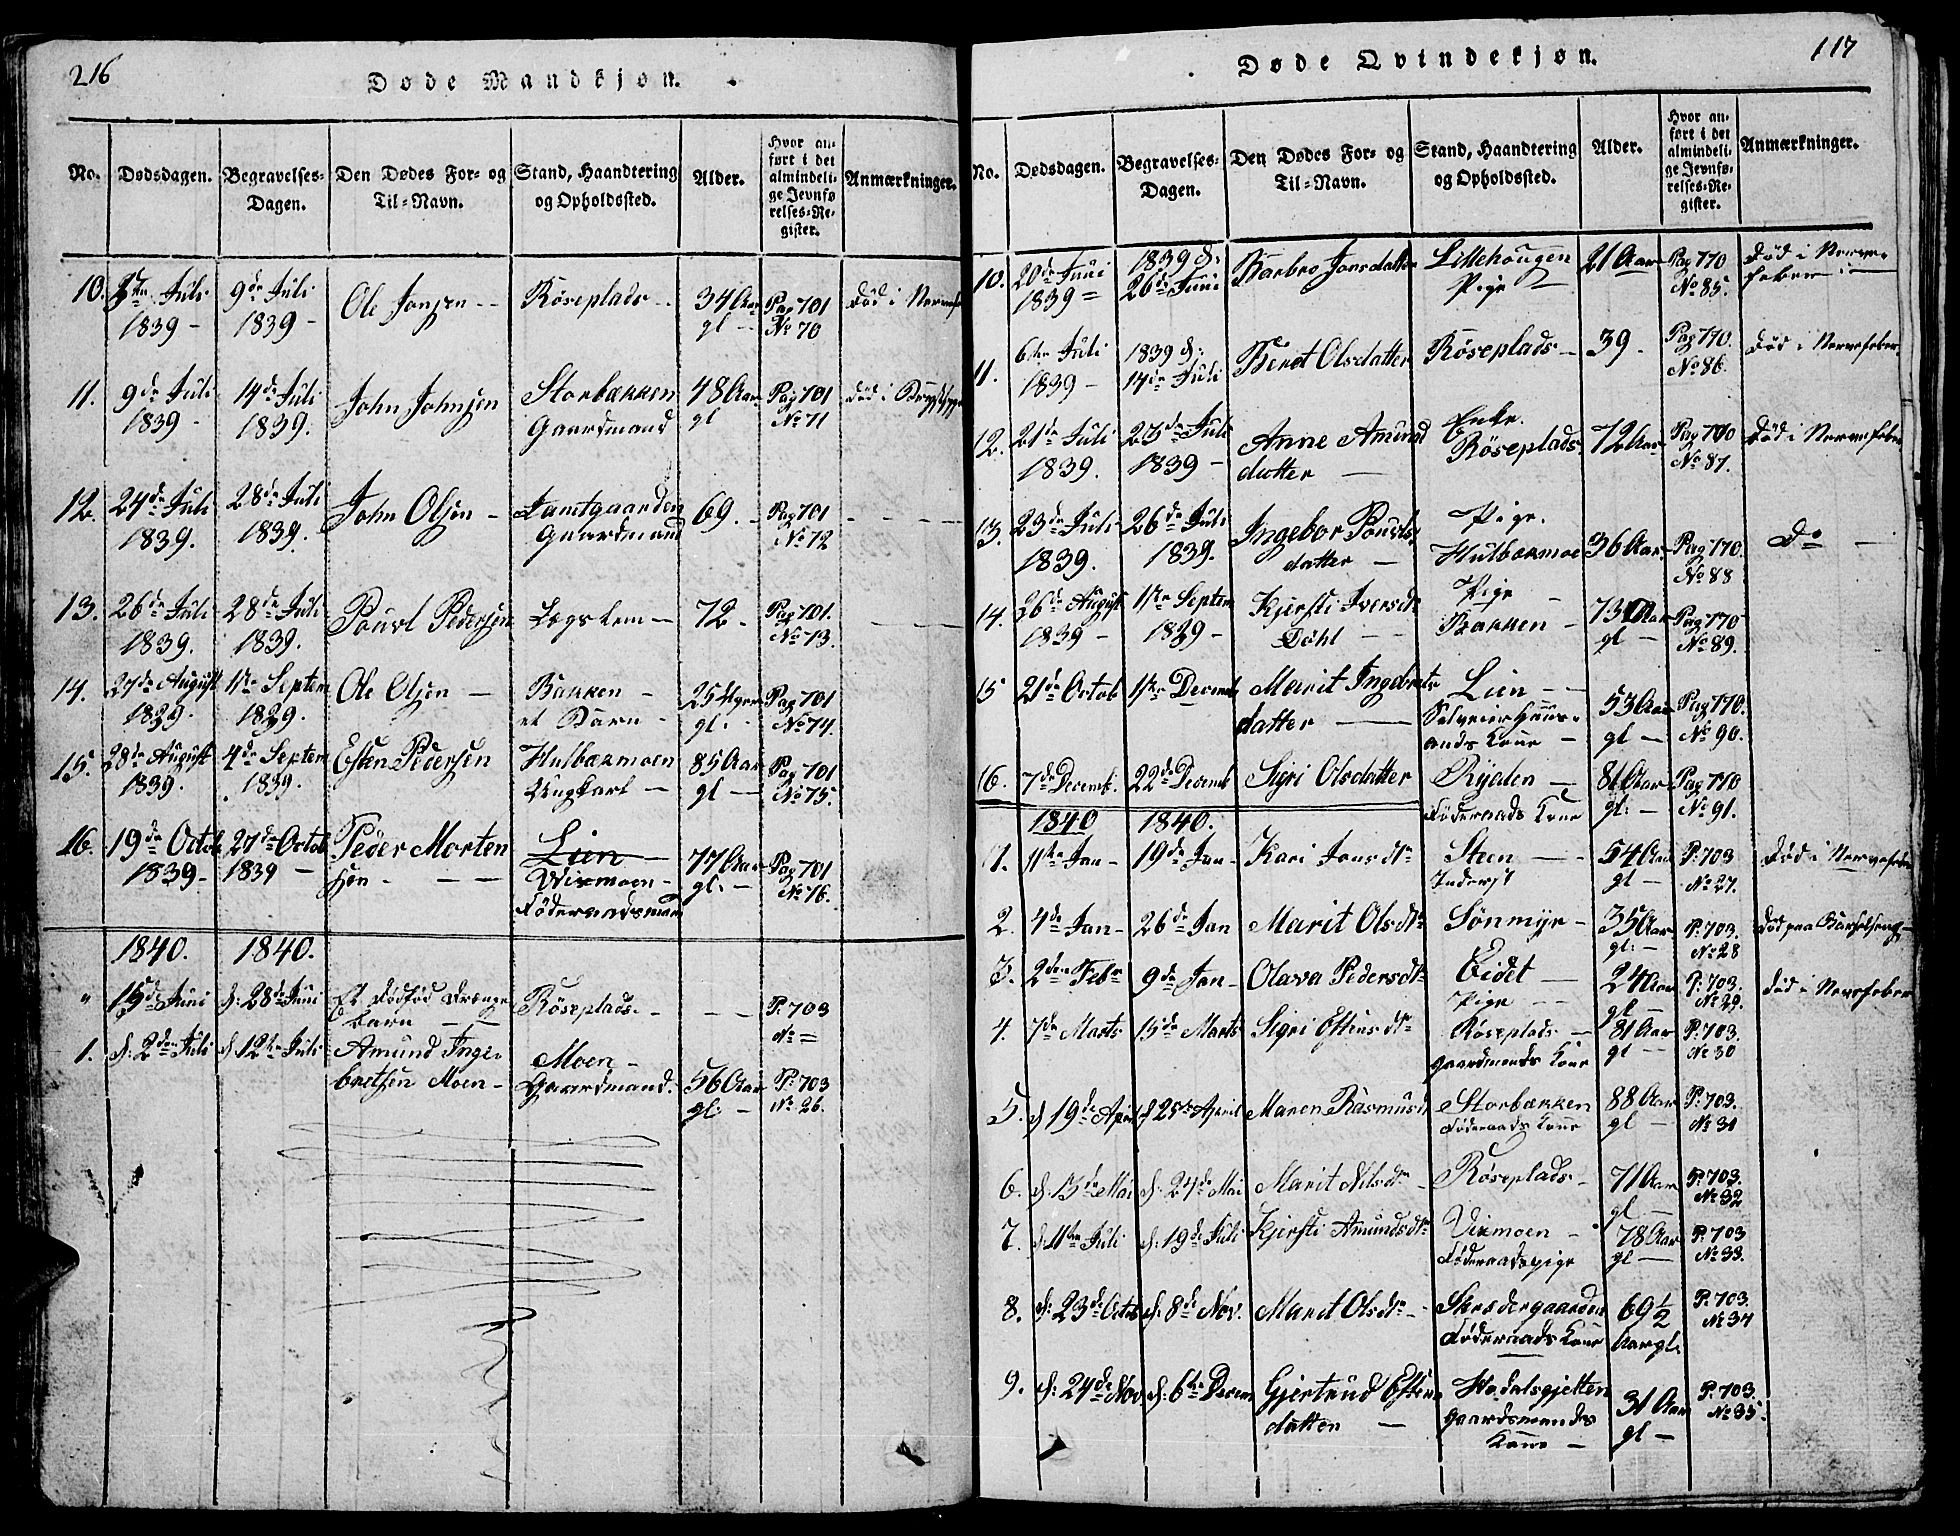 216
Døde Mandkjøn.
No.
Dødsdagen.
Begravelses-
Dagen.
Den Dødes For- og
Til-Navn.
Stand, Haandtering
og Opholdssted.
Alder.
Hvor an-
ført i det
almindeli-
ge Jevnfø-
relses-Re-
gister.
Anmærkninger.
10. Juli 9de Juli Ole Jonsen -- Röseplads -- 34 Aar Pag 701 død i
1839 - 1839 - gl - No 70
11. 9de Juli 14de Juli John Johnsen Storbækken 48 Aar Pag 701 død i
1839 - 1839. Gaardmand gl No 71
12. 24de Juli 28de Juli John Olsen - Jamtgaarden 69. - Pag 701 - - -
1839. 1839. Gaardmand No 72
13. 26de Juli 28de Juli Pouel Pedersen Legslem - 72 - Pag 701. - - -
1839. 1839. No 73.
14. 27de August 1ste Septem Ole Olsen - Bakken - 25 Uger Pag 701
1839. 1839. et Barn - gl: - No 74.
15. 28de August 4de Septem Esten Pedersen Hulbækmoen 85 Aar Pag 701
1839. 1839. Ungkarl - gl - No 75.
16. 19de Octob 27de Octob Peder Morten Lien - 77 Aar Pag 701
1839 - 1839 - sen - - - Vixmoen - gl: - No 76.
Föderaadsmand
1840. 1840.
" 15de Juni d: 28de Juni Et dödfød Drenge Röseplads. - - - P: 703
barn - - No =
1. d: 2den Juli d 12te Juli Amund Inge- Moen - 56 Aar P: 703
bretsen Moen - Gaardmand. gl: - No 26.
117
Døde Qvindekjøn.
No.
Dødsdagen.
Begravelses-
Dagen.
Den Dødes For- og
Til-Navn.
Stand, Haandtering
og Opholdssted.
Alder.
Hvor an-
ført i det
almindeli-
ge Jevnfø-
relses-Re-
gister.
Anmærkninger.
10. 20de Juni 1839 d: Barbro Jonsdatter Lillehougen 21 Aar Pag 770 død i Nerve-
1839 = 26de Juni Pige - No 85. feber -
11. 6te Juli 1839 d: Beret Olsdatter Röseplads - 39. Pag 770. død i Nervefeber.
1839 - 14de Juli No 86.
12. 21de Juli 23de Juli Anne Amund Enke. 72 Aar Pag 770 Død i Nervefeber
1839. 1839 - datter - Röseplads. No 87.
13. 23de Juli 26de Juli Ingebor Pouels Pige. 36 Aar Pag 770. Do -
1839. 1839. datter - Hulbækmoe No 88
14. 26de August 1ste Septem Kjersti Iversdtr Pige - 73 Aar Pag 770
1839 - 1839 - Döhl - - Bakken - gl - No 89.
15 21de Octob 1ste Decemb Marit Ingebrets Lien - - 53 Aar Pag 770.
datter - Selveier Huus- gl - No 90.
ands Kone -
16. 7de Decemb. 22de Decemb Sigri Olsdatter Ryden - 81 Aar Pag 770
Föderaads Kone gl: - No 91.
1840 1840.
1. 11te Jan - 19de Jan - Kari Jonsdtr Steen - - 54 Aar P: 703 død i Nervefeber
Inderst gl - No 27.
2. 4de Jan - 26de Jan Marit Olsdtr Sönmyr - 35 Aar P: 703. død paa Barselseng -
gl: - No 28
3. 2den Febr 9de Jan - Olava Pedersdtr Eidet - 24 Aar P: 703. død i Nervefeber
Pige - - gl - No 29.
4. 7de Marts 15de Marts Sigri Estensdtr Röseplads - 81 Aar P: 703.
gaardmands Kone gl - No 30
5. d 19de April d 25de April Maren Rasmusd Storbækken 88 Aar P: 703.
Föderaads Kone gl - No 31
6. d. 13de Mai d: 24de Mai Marit Nilsdtr - Röseplads - 71 Aar P: 703.
gl - No 32
7. d: 11te Juli d: 19de Juli Kjersti Amundsdtr Vixmoen - 78 Aar P: 703
Föderaadspige gl - No 33.
8. d: 23de Octob d: 8de Nov. Marit Olsdtr - Skredergaarden 69 1/2 P: 703.
Föderaads Kone Aar gl: No 34
9. d: 24de Nov. d: 6te Decem Gjertrud Esten Hadalsgjetten 31 Aar P: 703.
datter - Gaardmands gl - No 35.
Kone -